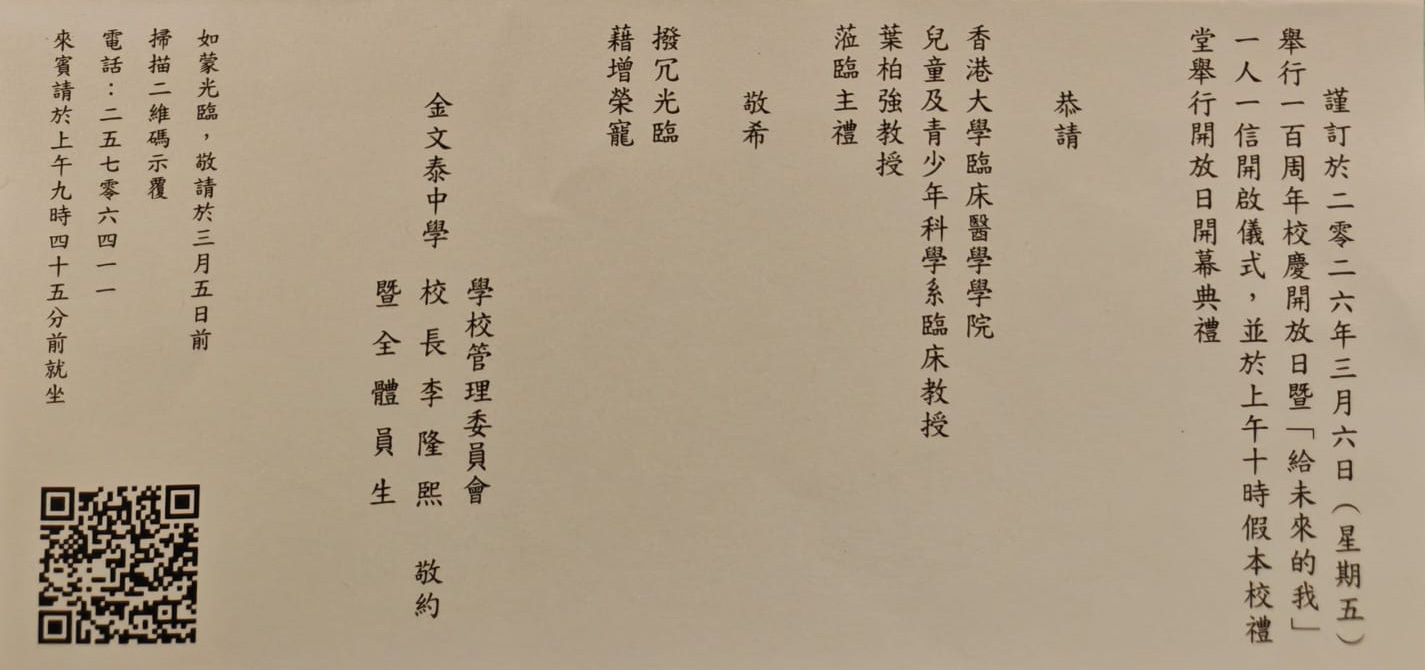 謹訂於二零二六年三月六日（星期五）
舉行一百周年校慶開放日暨「給未來的我」
一人一信開啟儀式，並於上午十時假本校禮
堂舉行開放日開幕典禮
恭請
香港大學臨床醫學學院
兒童及青少年科學系臨床教授
葉柏強教授
蒞臨主禮
敬希
撥冗光臨
藉增榮寵
學校管理委員會
金文泰中學 校長李隆熙 敬約
暨全體員生
如蒙光臨，敬請於三月五日前
掃描二維碼示覆
電話：二五七零六四一一
來賓請於上午九時四十五分前就坐